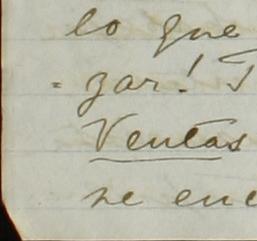 lo que
= gar! T
Ventas
se enc